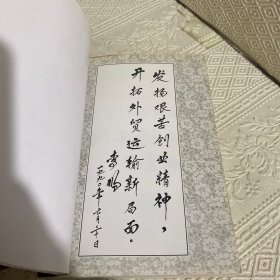 发扬艰苦创业精神，
开拓外贸运输新局面。
李鹏
一九九〇年八月二十日